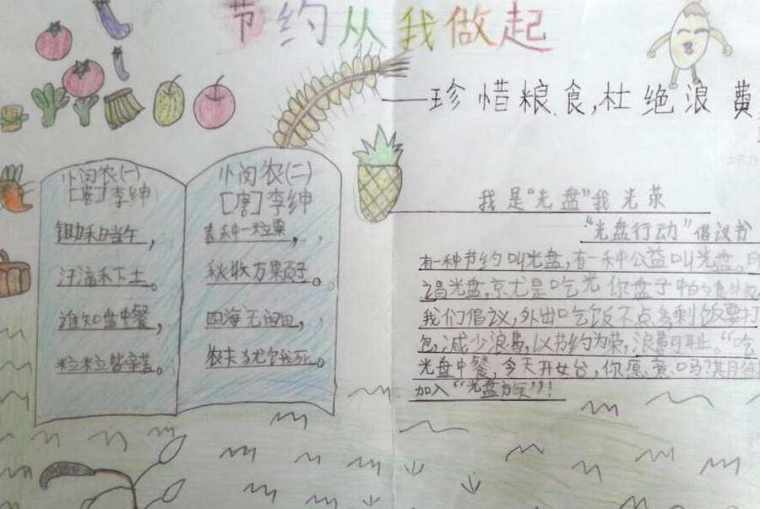 节约从我做起
——珍惜粮食,杜绝浪费
小闵农(一)
[唐]李绅
锄禾日当午,
汗滴禾下土。
谁知盘中餐,
粒粒皆辛苦。
小闵农(二)
[唐]李绅
春种一粒粟,
秋收万果子。
四海无闲田,
农夫犹饿死。
我是"光盘"我光荣
"光盘行动"倡议书
有一种节约叫光盘,有一种公益叫光盘,所
谓光盘,就是吃光你盘子中的
我们倡议,外出吃饭不点多剩饭要打
包,减少浪费,以节约为荣,浪费可耻。"吃
光盘中餐,今天开始,你愿意吗?
加入"光盘"!